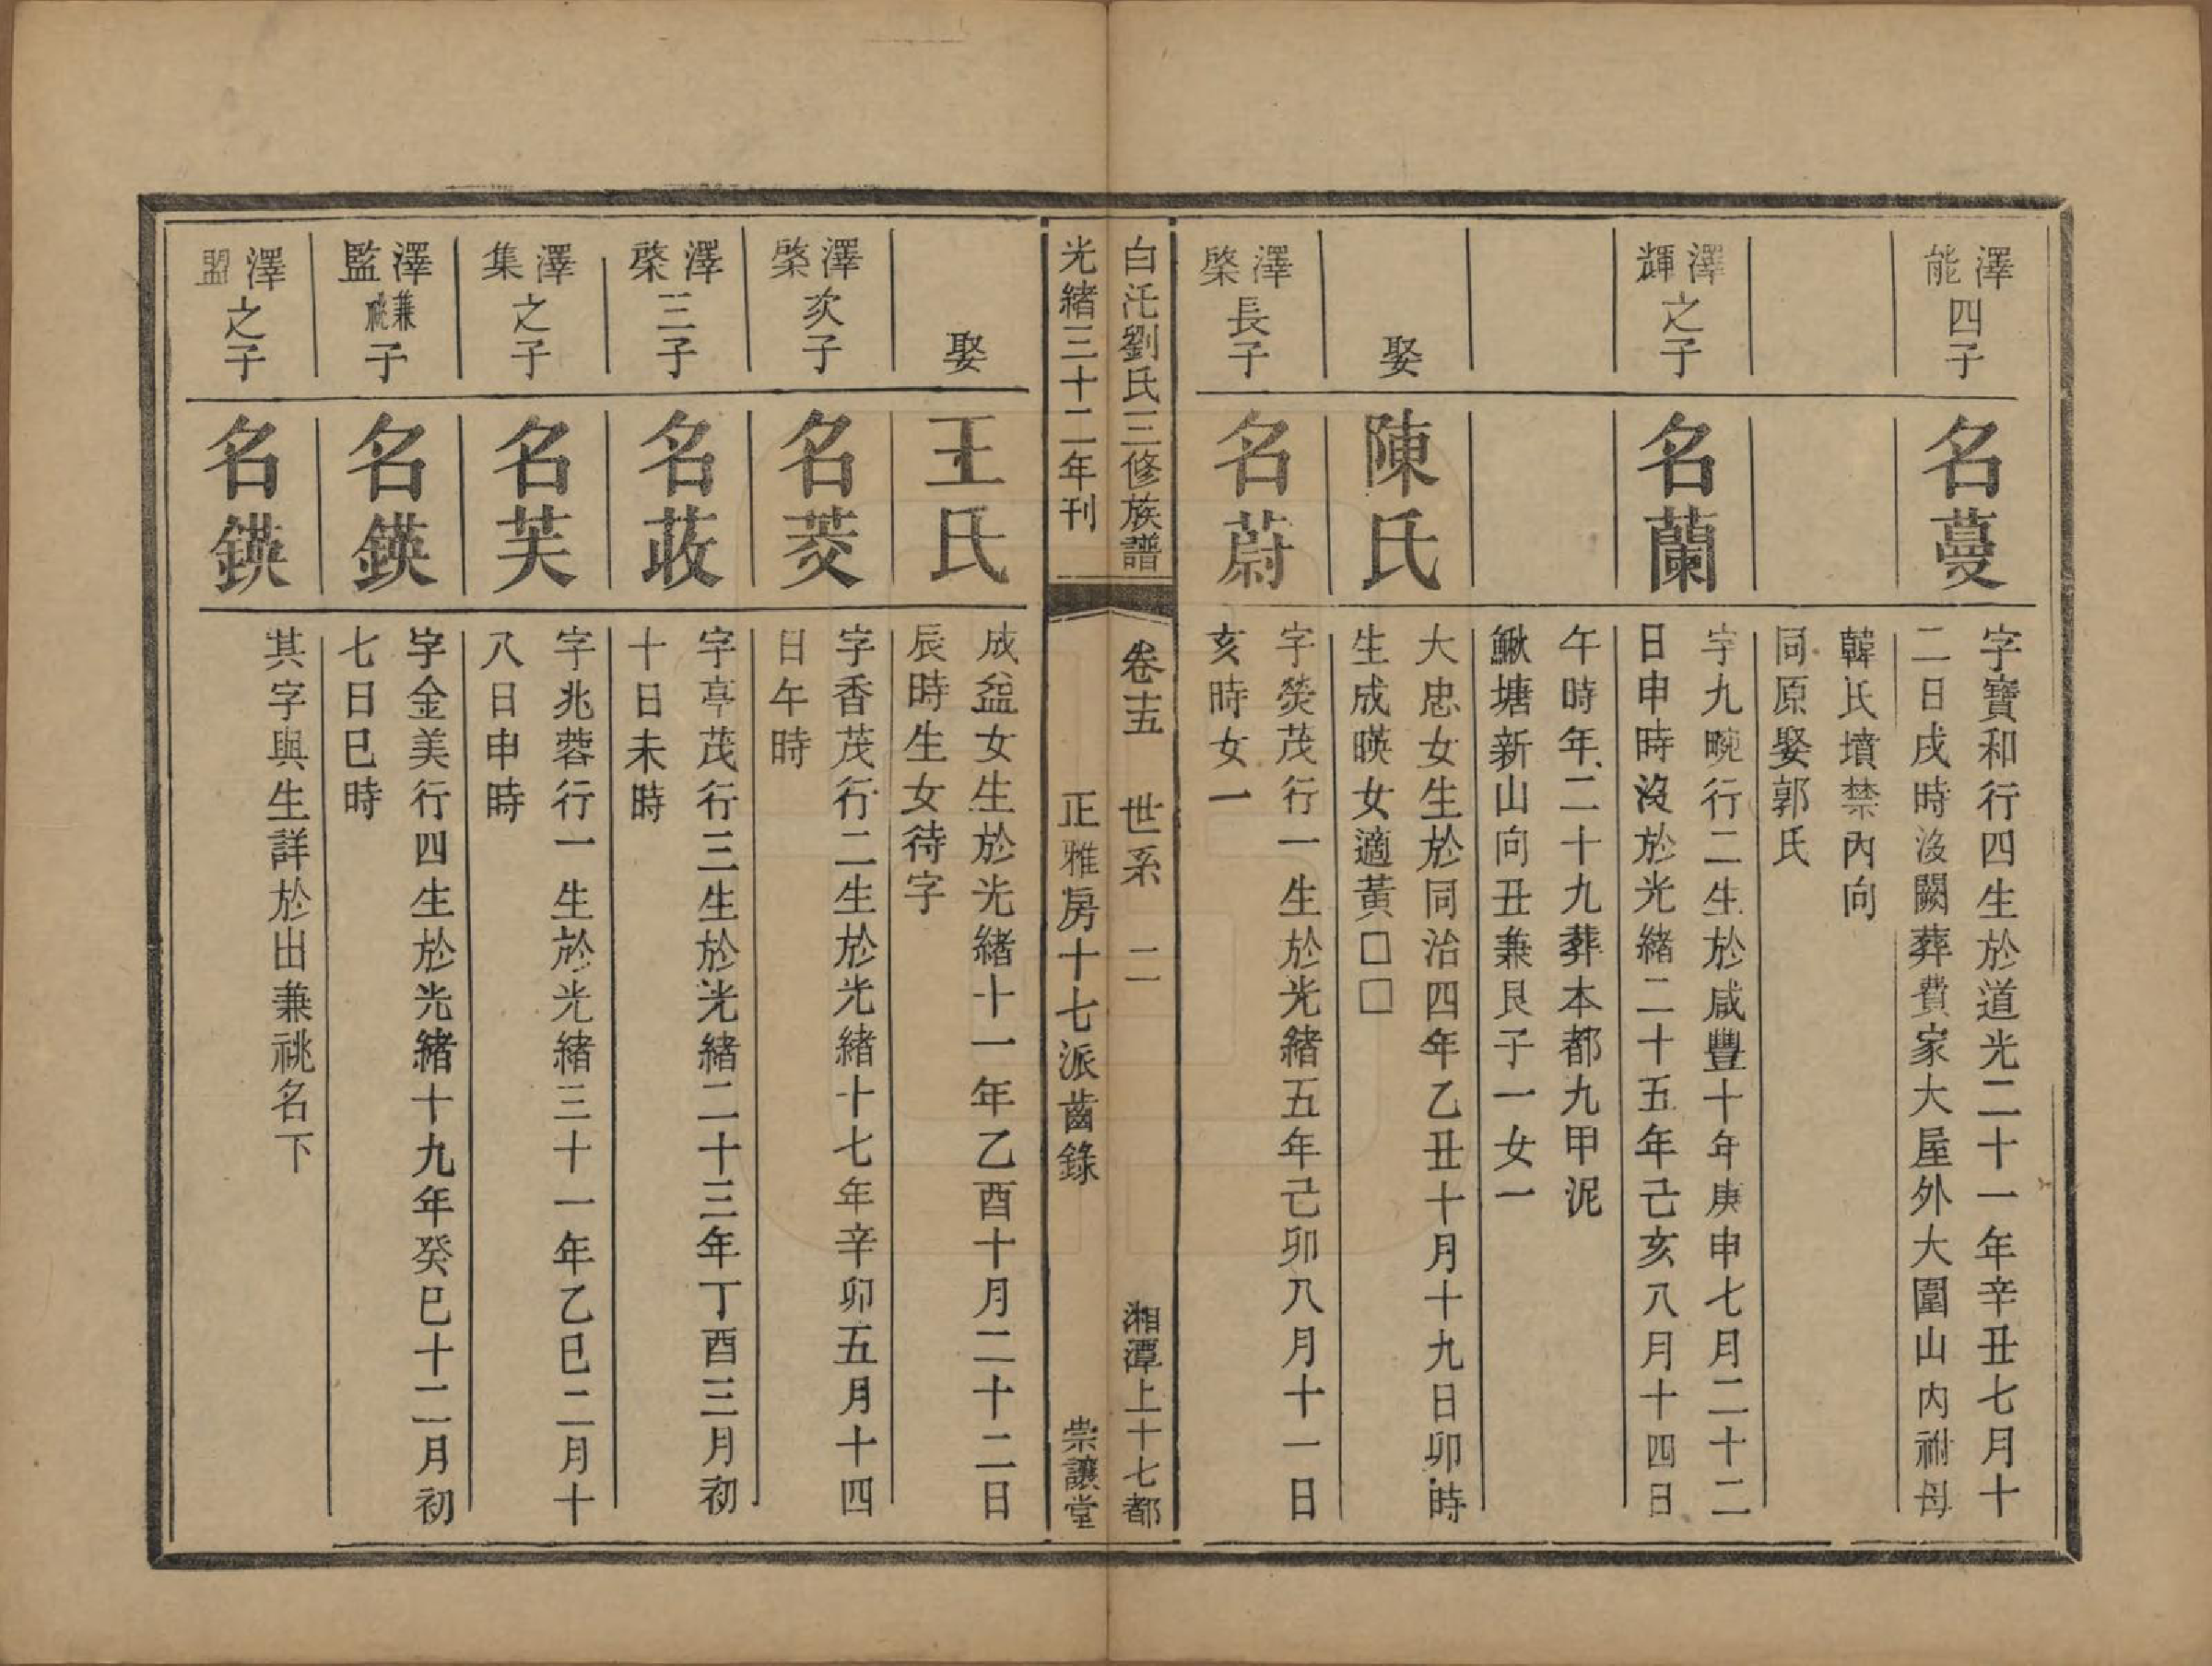 澤能四子
名蔓
字寶和行四生於道光二十一年辛丑七月十
二日戌時沒闕葬費家大屋外大圍山內祔母
韓氏墳禁內向
同原娶郭氏
澤輝之子
名蘭
字九畹行二生於咸豐十年庚申七月二十二
日申時沒於光緒二十五年己亥八月十四日
午時年二十九葬本都九甲泥
鰍塘新山向丑兼艮子一女一
娶
陳氏
大忠女生於同治四年乙丑十月十九日卯時
生成暎女適黃□□
澤棨長子
名蔚
字熒茂行一生於光緒五年己卯八月十一日
亥時女一
白汑劉氏三修族譜
卷十五 世系 二
湘潭上十七都
光緒三十二年刊
正雅房十七派齒錄
崇讓堂
娶
王氏
成益女生於光緒十一年乙酉十月二十二日
辰時生女待字
澤棨次子
名菱
字香茂行二生於光緒十七年辛卯五月十四
日午時
澤棨三子
名蔋
字亭茂行三生於光緒二十三年丁酉三月初
十日未時
澤集之子
名芙
字兆蓉行一生於光緒三十一年乙巳二月十
八日申時
澤監兼祧子
名鍈
字金美行四生於光緒十九年癸巳十二月初
七日巳時
澤盟之子
名鍈
其字與生詳於出兼祧名下